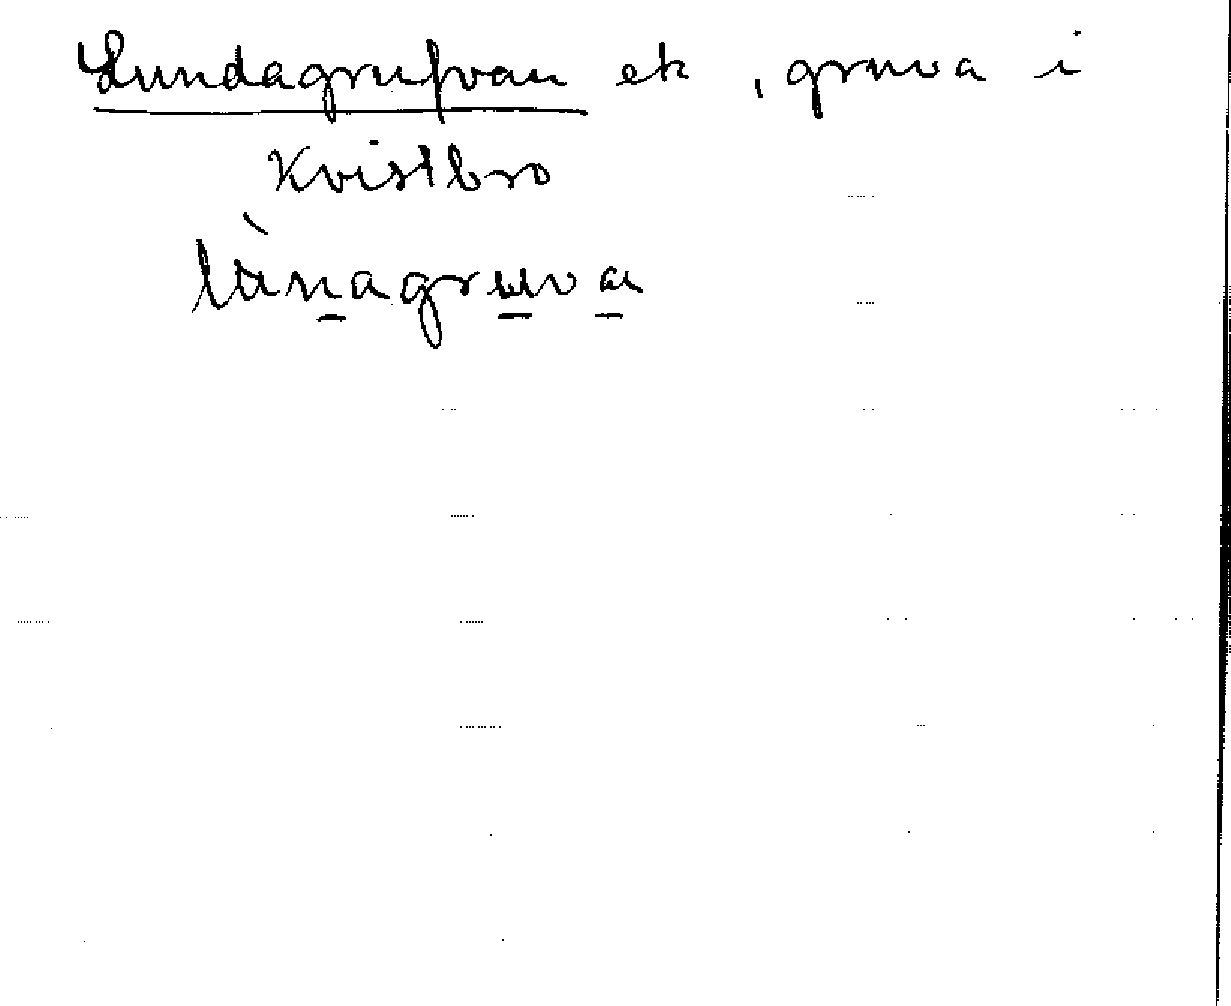 Lundagrufvan ek, gruva i
Kvistbro
lùnagruva